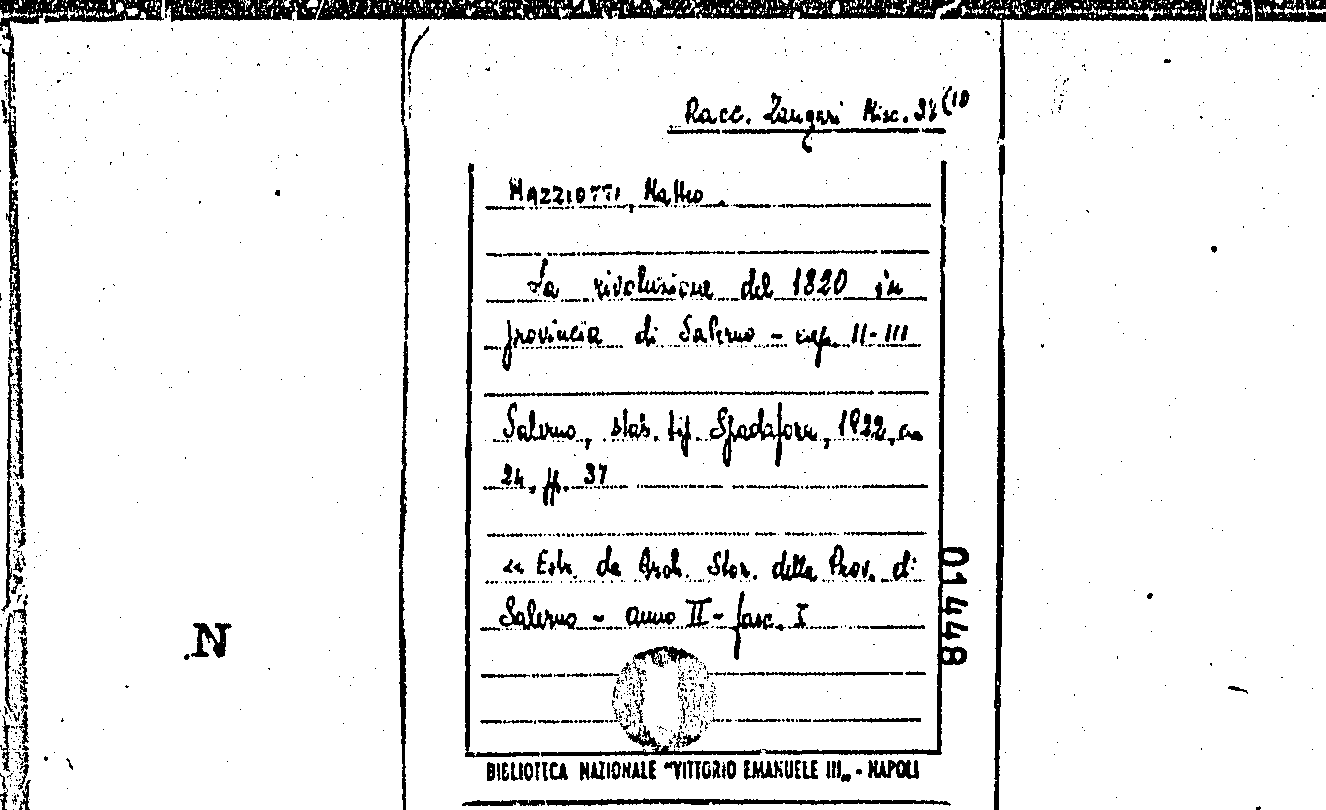 Racc. Zangari Misc. 28 (10
MAZZIOTTI, Matteo
La rivoluzione del 1820 in
provincia di Salerno - cap. II-III
Salerno, stab. tip. Spadafora, 1922, cm
24. pp. 37
Estr. da Arch. Stor. della Prov. di
Salerno - anno II - fasc. I
01448
N.
BIBLIOTECA NAZIONALE "VITTORIO EMANUELE III„ - NAPOLI